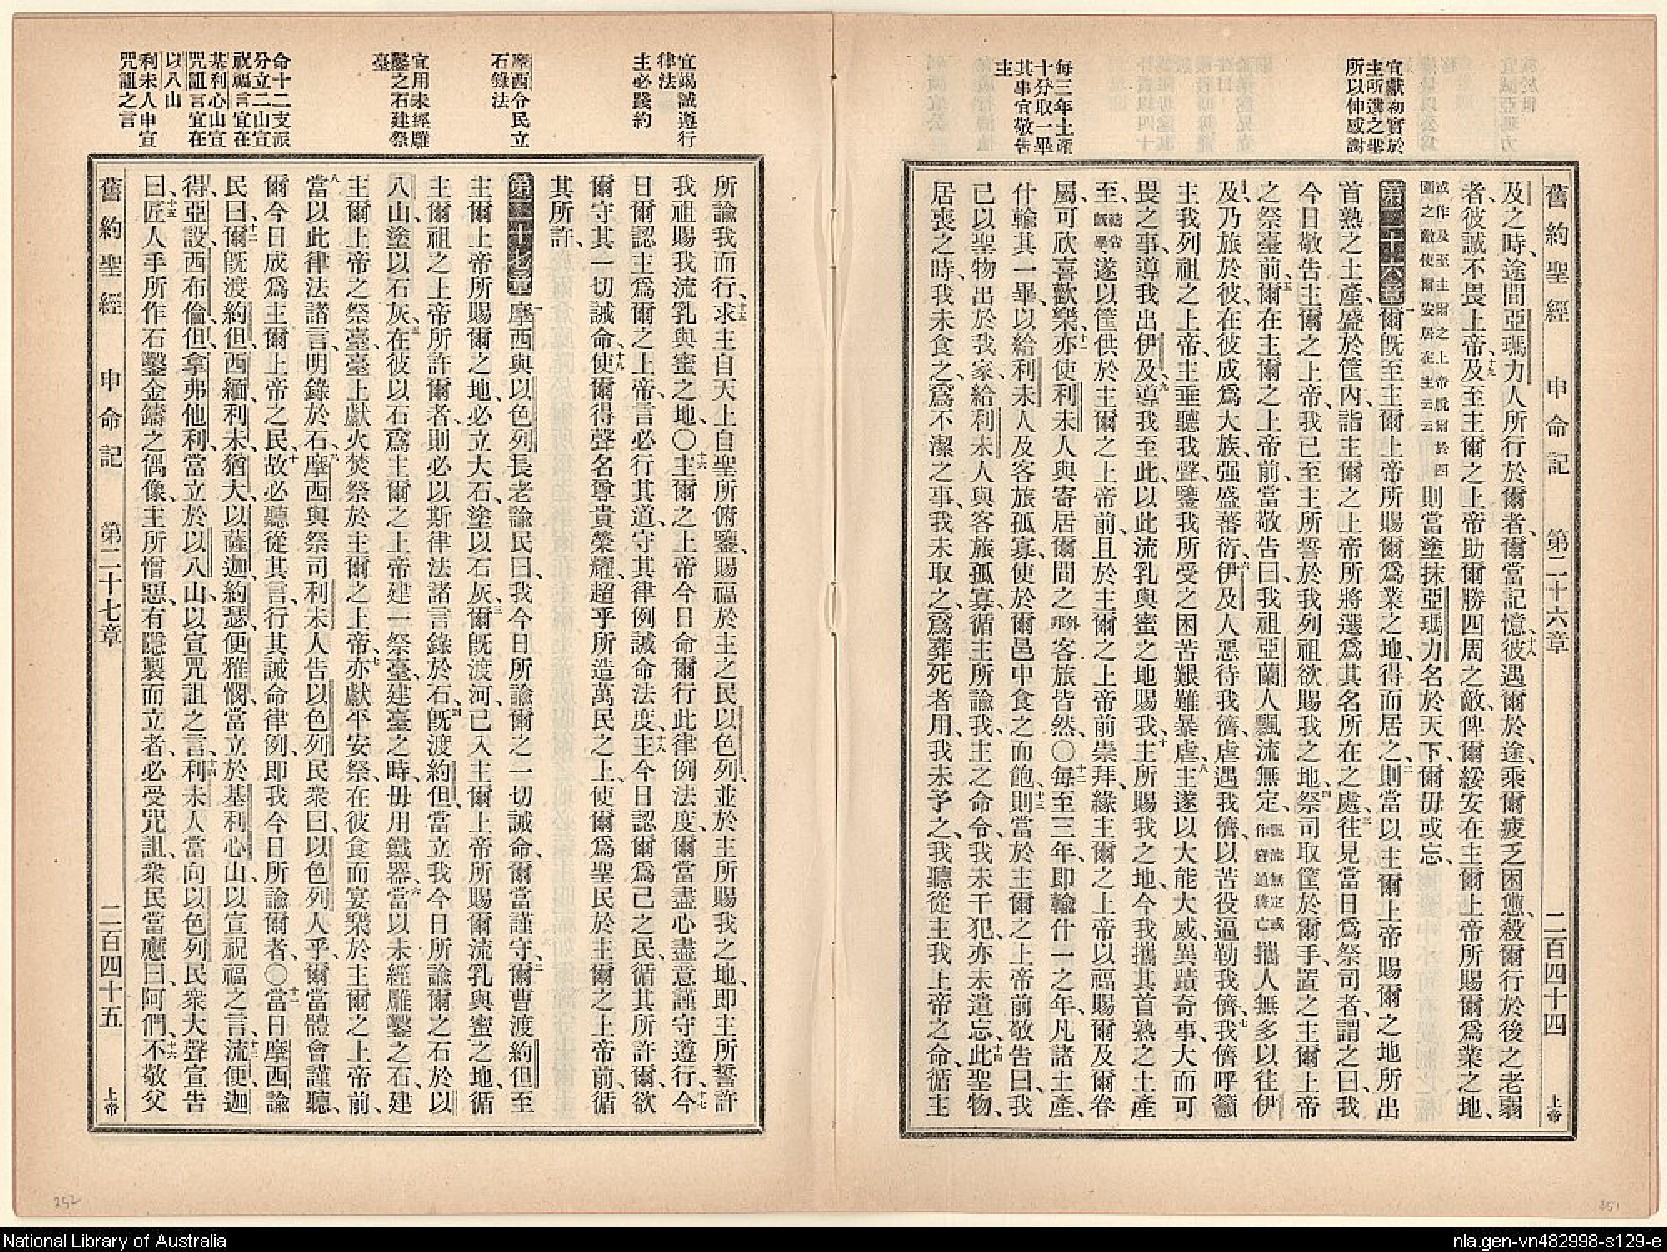 宜獻初實於
主所選之處
所以伸感謝
每三年土產
十分取一畢
其事宜敬告
主
舊約聖經 申命記 第二十六章 二百四十四 上帝
及之時、途間亞瑪力人所行於爾者、爾當記憶、十八彼遇爾於途、乘爾疲乏困憊、殺爾行於後之老弱
者、彼誠不畏上帝、十九及至主爾之上帝助爾勝四周之敵、俾爾綏安在主爾上帝所賜爾爲業之地、
或作及至主爾之上帝脫爾於四
圍之敵使爾安居在主云云
則當塗抹亞瑪力名於天下、爾毋或忘、
第二十六章 一爾旣至主爾上帝所賜爾爲業之地、得而居之、二則當以主爾上帝賜爾之地所出
首熟之土產、盛於筐內、詣主爾之上帝所將選爲其名所在之處、三往見當日爲祭司者、謂之曰、我
今日敬告主爾之上帝、我已至主所誓於我列祖欲賜我之地、四祭司取筐於爾手、置之主爾上帝
之祭臺前、五爾在主爾之上帝前、當敬告曰、我祖亞蘭人飄流無定、
飄流無定或
作窘迫將亡
攜人無多以往伊
及、乃旅於彼、在彼成爲大族、强盛蕃衍、六伊及人惡待我儕、虐遇我儕、以苦役逼勒我儕、七我儕呼籲
主我列祖之上帝、主垂聽我聲、鑒我所受之困苦艱難暴虐、八主遂以大能大威異蹟奇事大而可
畏之事、導我出伊及、九導我至此、以此流乳與蜜之地賜我、十主所賜我之地、今我攜其首熟之土產
至、遂以筐供於主爾之上帝前、且於主爾之上帝前崇拜、緣主爾之上帝以福賜爾及爾眷
屬、可欣喜歡樂、十一亦使利未人與寄居爾間之客旅皆然、〇十二每至三年、卽輸什一之年、凡諸土產、
什輸其一、畢以給利未人及客旅孤寡、使於爾邑中食之而飽、十三則當於主爾之上帝前敬告曰、我
已以聖物出於我家、給利未人與客旅孤寡、循主所諭我、主之命令、我未干犯、亦未遺忘、十四此聖物、
居喪之時、我未食之、爲不潔之事、我未取之、爲葬死者用、我未予之、我聽從主我上帝之命、循主
宜竭誠遵行
律法
主必踐約
摩西令民立
石錄法
宜用未經雕
鑿之石建祭
臺
命十二支派
分立二山宜
祝福言宜在
基利心山宣
咒詛言宜在
以八山
利未人申宣
咒詛之言
所諭我而行、十五求主自天上自聖所俯鑒、賜福於主之民以色列、並於主所賜我之地、卽主所誓許
我祖賜我流乳與蜜之地、〇十六主爾之上帝今日命爾行此律例法度、爾當盡心盡意、謹守遵行、十七今
日爾認主爲爾之上帝、言必行其道、守其律例誡命法度、十八主今日認爾爲己之民、循其所許爾、欲
爾守其一切誡命、十九使爾得聲名尊貴榮耀、超乎所造萬民之上、使爾爲聖民於主爾之上帝前、循
其所許、
第二十七章 一摩西與以色列長老諭民曰、我今日所諭爾之一切誡命、爾當謹守、二爾曹渡約但至
主爾上帝所賜爾之地、必立大石、塗以石灰、三爾旣渡河、已入主爾上帝所賜爾流乳與蜜之地、循
主爾祖之上帝所許爾者、則必以斯律法諸言錄於石、四旣渡約但、當立我今日所諭爾之石於以
八山、塗以石灰、五在彼以石爲主爾之上帝建一祭臺、建臺之時、毋用鐵器、六當以未經雕鑿之石、建
主爾上帝之祭臺、臺上獻火焚祭於主爾之上帝、七亦獻平安祭、在彼食而宴樂於主爾之上帝前、
八當以此律法諸言、明錄於石、九摩西與祭司利未人告以色列民衆曰、以色列人乎、爾當體會謹聽、
爾今日成爲主爾上帝之民、十故必聽從其言、行其誡命律例、卽我今日所諭爾者、〇十一當日摩西諭
民曰、十二爾旣渡約但、西緬利未猶大以薩迦約瑟便雅憫當立於基利心山、以宣祝福之言、十三流便迦
得亞設西布倫但拿弗他利當立於以八山、以宣咒詛之言、十四利未人當向以色列民衆大聲宣告
曰、十五匠人手所作石鑿金鑄之偶像、主所憎惡、有隱製而立者、必受咒詛、衆民當應曰、阿們、十六不敬父
舊約聖經 申命記 第二十七章 二百四十五 上帝
252
251
National Library of Australia
nla.gen-vn482998-s129-e